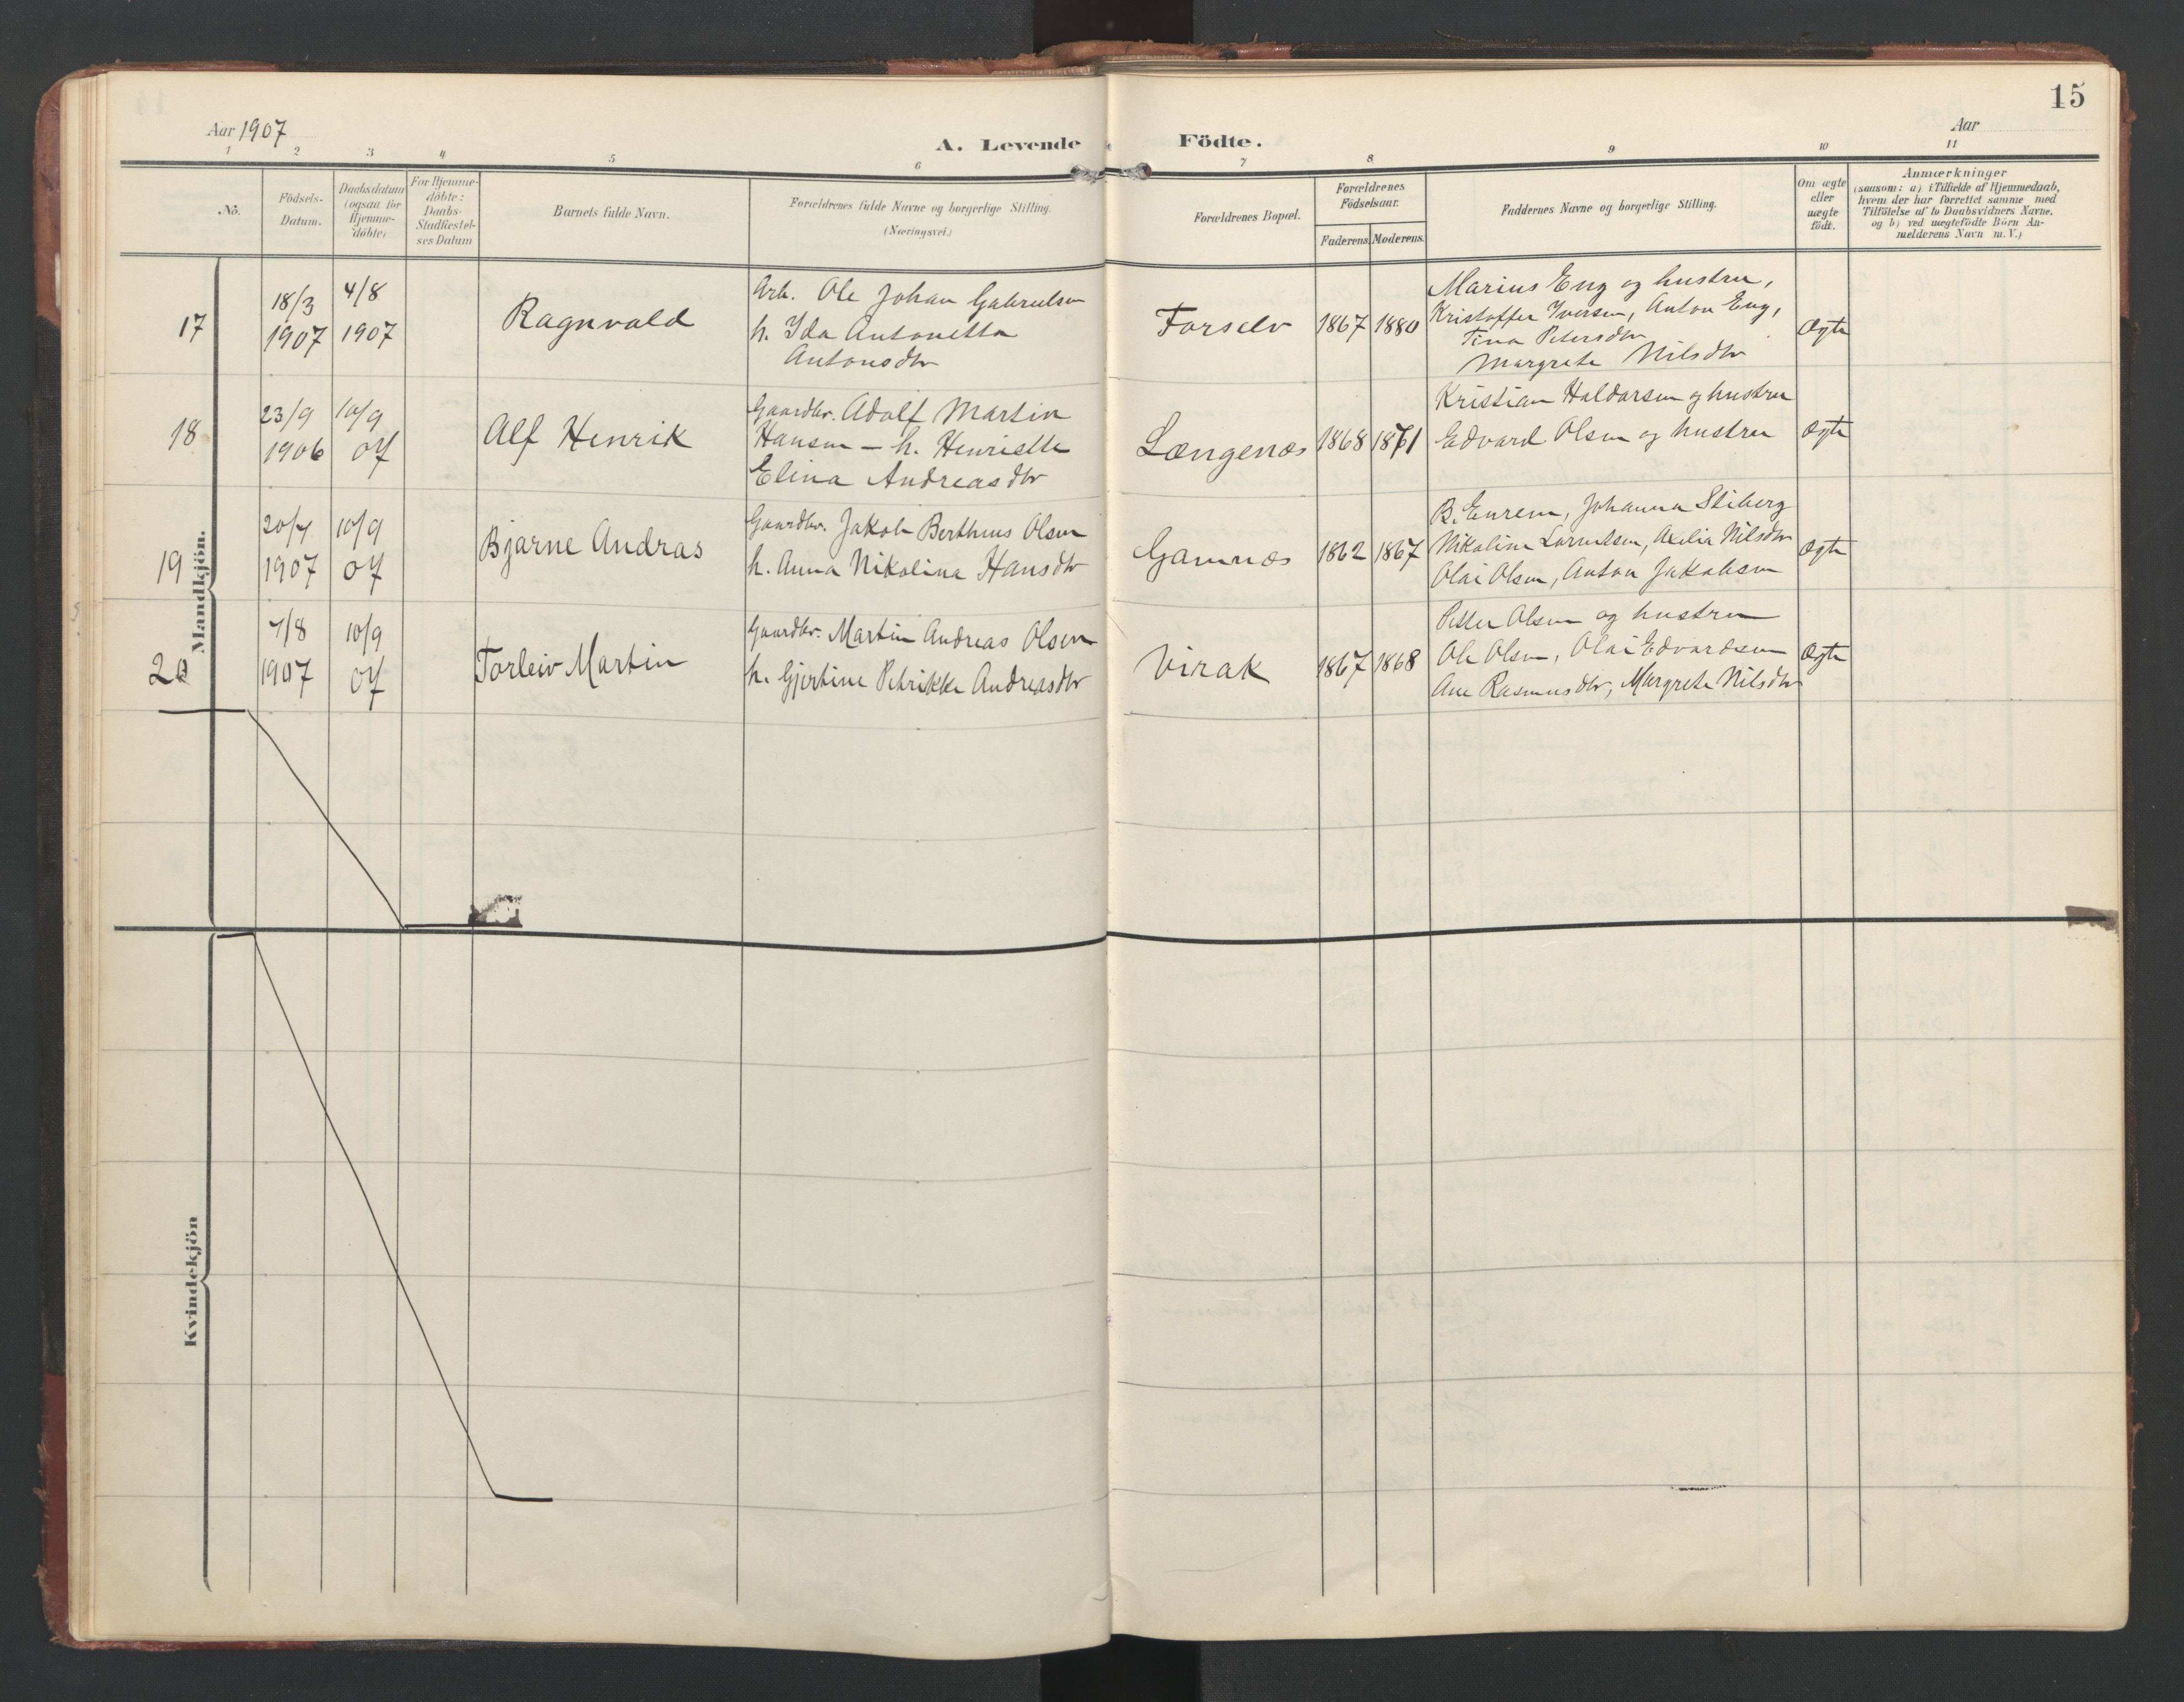 15
Aar 1907
A. Levende Födte.
Aar
1 2 3 4 5 6 7 8 9 10 11
No.
Födsels-
Datum.
Daabsdatum
(ogsaa for
Hjemme-
döbte)
For Hjemme-
döbte:
Daabs-
Stadfæstel-
ses Datum
Barnets fulde Navn.
Forældrenes fulde Navne og borgerlige Stilling.
(Næringsvei.)
Forældrenes Bopæl.
Forældrenes
Födselsaar.
Faderens. Moderens.
Faddernes Navne og borgerlige Stilling.
Om ægte
eller
uægte
födt.
Anmærkninger
(saasom: a) i Tilfælde af Hjemmedaab,
hvem der har forrettet samme med
Tilföielse af to Daabsvidners Navne,
og b) ved uægtefödte Börn An-
melderens Navn m. V.)
Mandkjön.
17
18/3
1907
4/8
1907
Ragnvald
Arb. Ole Johan Gabrielsen
h. Ida Antonetta
Antonsdtr
Forselv
1867
1880
Marius Eng og hustru,
Kristoffer Iversen, Anton Eng,
Tina Petersdtr
Margrete Nilsdtr
Ægte
18
23/9
1906
10/9
07
Alf Henrik
Gaardbr. Adolf Martin
Hansen – h. Henriette
Elina Andreasdtr
Længenæs
1868
1871
Kristian Haldorsen og hustru
Edvard Olsen og hustru
Ægte
19
20/4
1907
10/9
07
Bjarne Andras
Gaardbr. Jakob Bertheus Olsen
h. Anna Nikolina Hansdtr
Gamnæs
1862
1867
B. Enrem, Johanna Stiberg
Nikoline Nilsdtr
Olai Olsen, Anton Jakobsen
Ægte
20
7/8
1907
10/9
07
Torleiv Martin
Gaardbr. Martin Andreas Olsen
h. Gjertine Petrikke Andreasdtr
Virak
1867
1868
Petter Olsen og hustru
Ole Olsen, Olai Edvardsen
Ane Rasmusdtr, Margrete Nilsdtr
Ægte
Kvindekjön